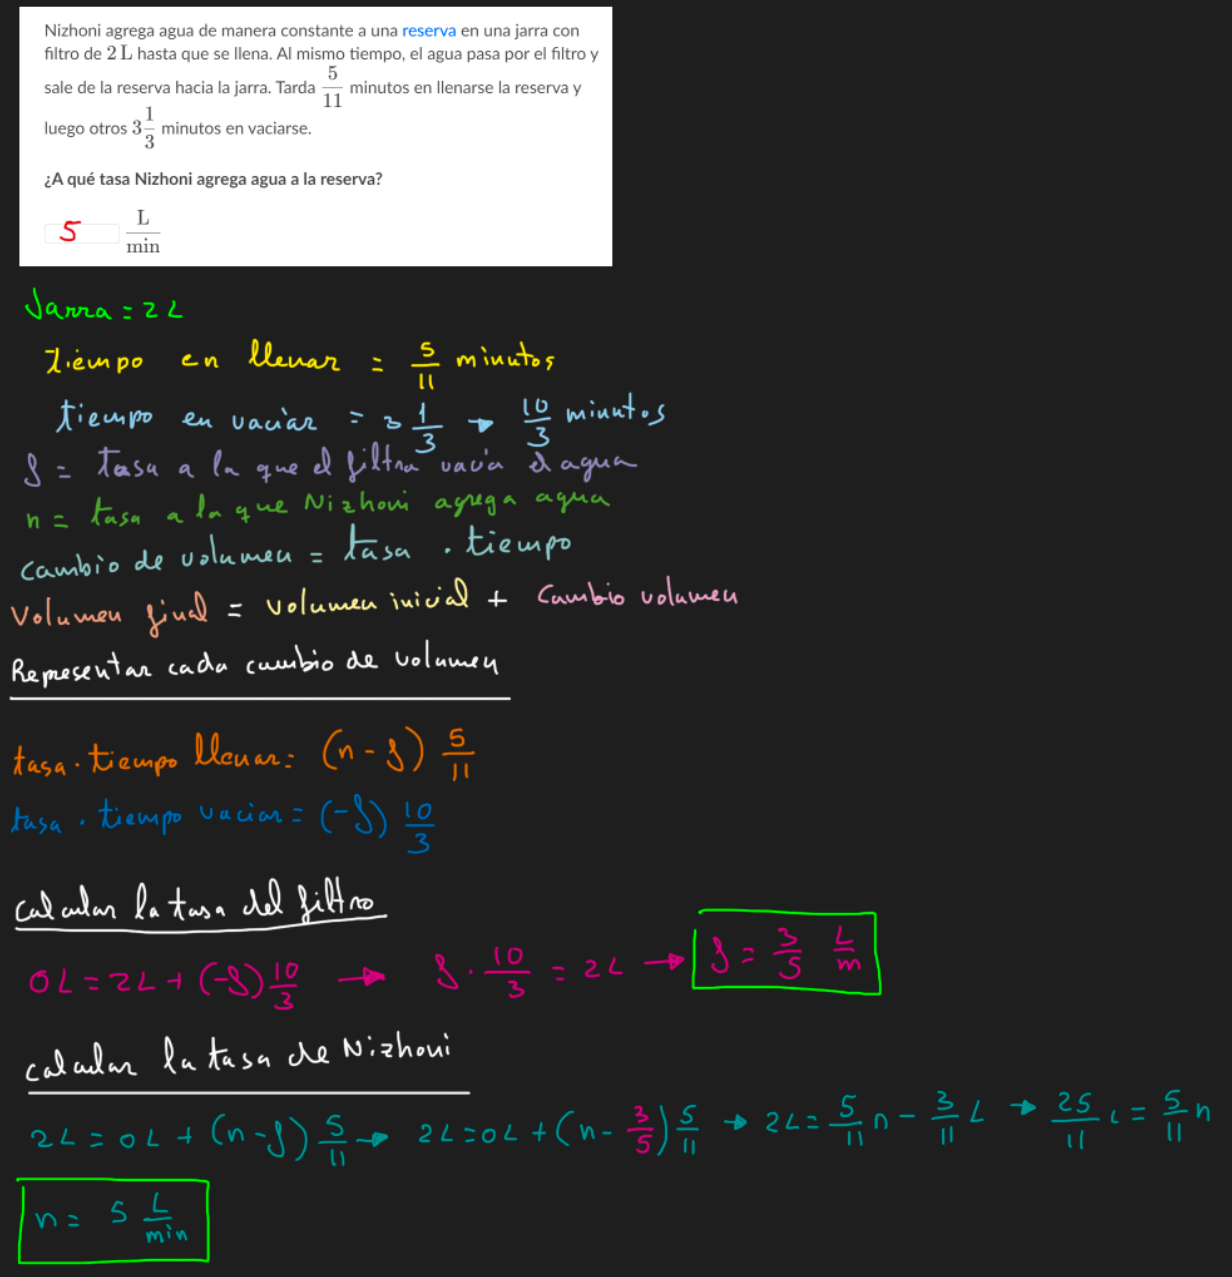 Nizhoni agrega agua de manera constante a una reserva en una jarra con
filtro de 2 L hasta que se llena. Al mismo tiempo, el agua pasa por el filtro y
sale de la reserva hacia la jarra. Tarda 5/11 minutos en llenarse la reserva y
luego otros 3 1/3 minutos en vaciarse.
¿A qué tasa Nizhoni agrega agua a la reserva?
5 L/min
Jarra = 2 L
Tiempo en llenar = 5/11 minutos
tiempo en vaciar = 3 1/3 → 10/3 minutos
f = tasa a la que el filtra vacía el agua
n = tasa a la que Nizhoni agrega agua
cambio de volumen = tasa . tiempo
Volumen final = volumen inicial + Cambio volumen
Representar cada cambio de volumen
tasa . tiempo llenar = (n - f) 5/11
tasa . tiempo vaciar = (-f) 10/3
calcular la tasa del filtro
0L = 2L + (-f) 10/3 → f . 10/3 = 2L → f = 3/5 L/m
calcular la tasa de Nizhoni
2L = 0L + (n - f) 5/11 → 2L = 0L + (n - 3/5) 5/11 → 2L = 5/11 n - 3/11 L → 25/11 L = 5/11 n
n = 5 L/min